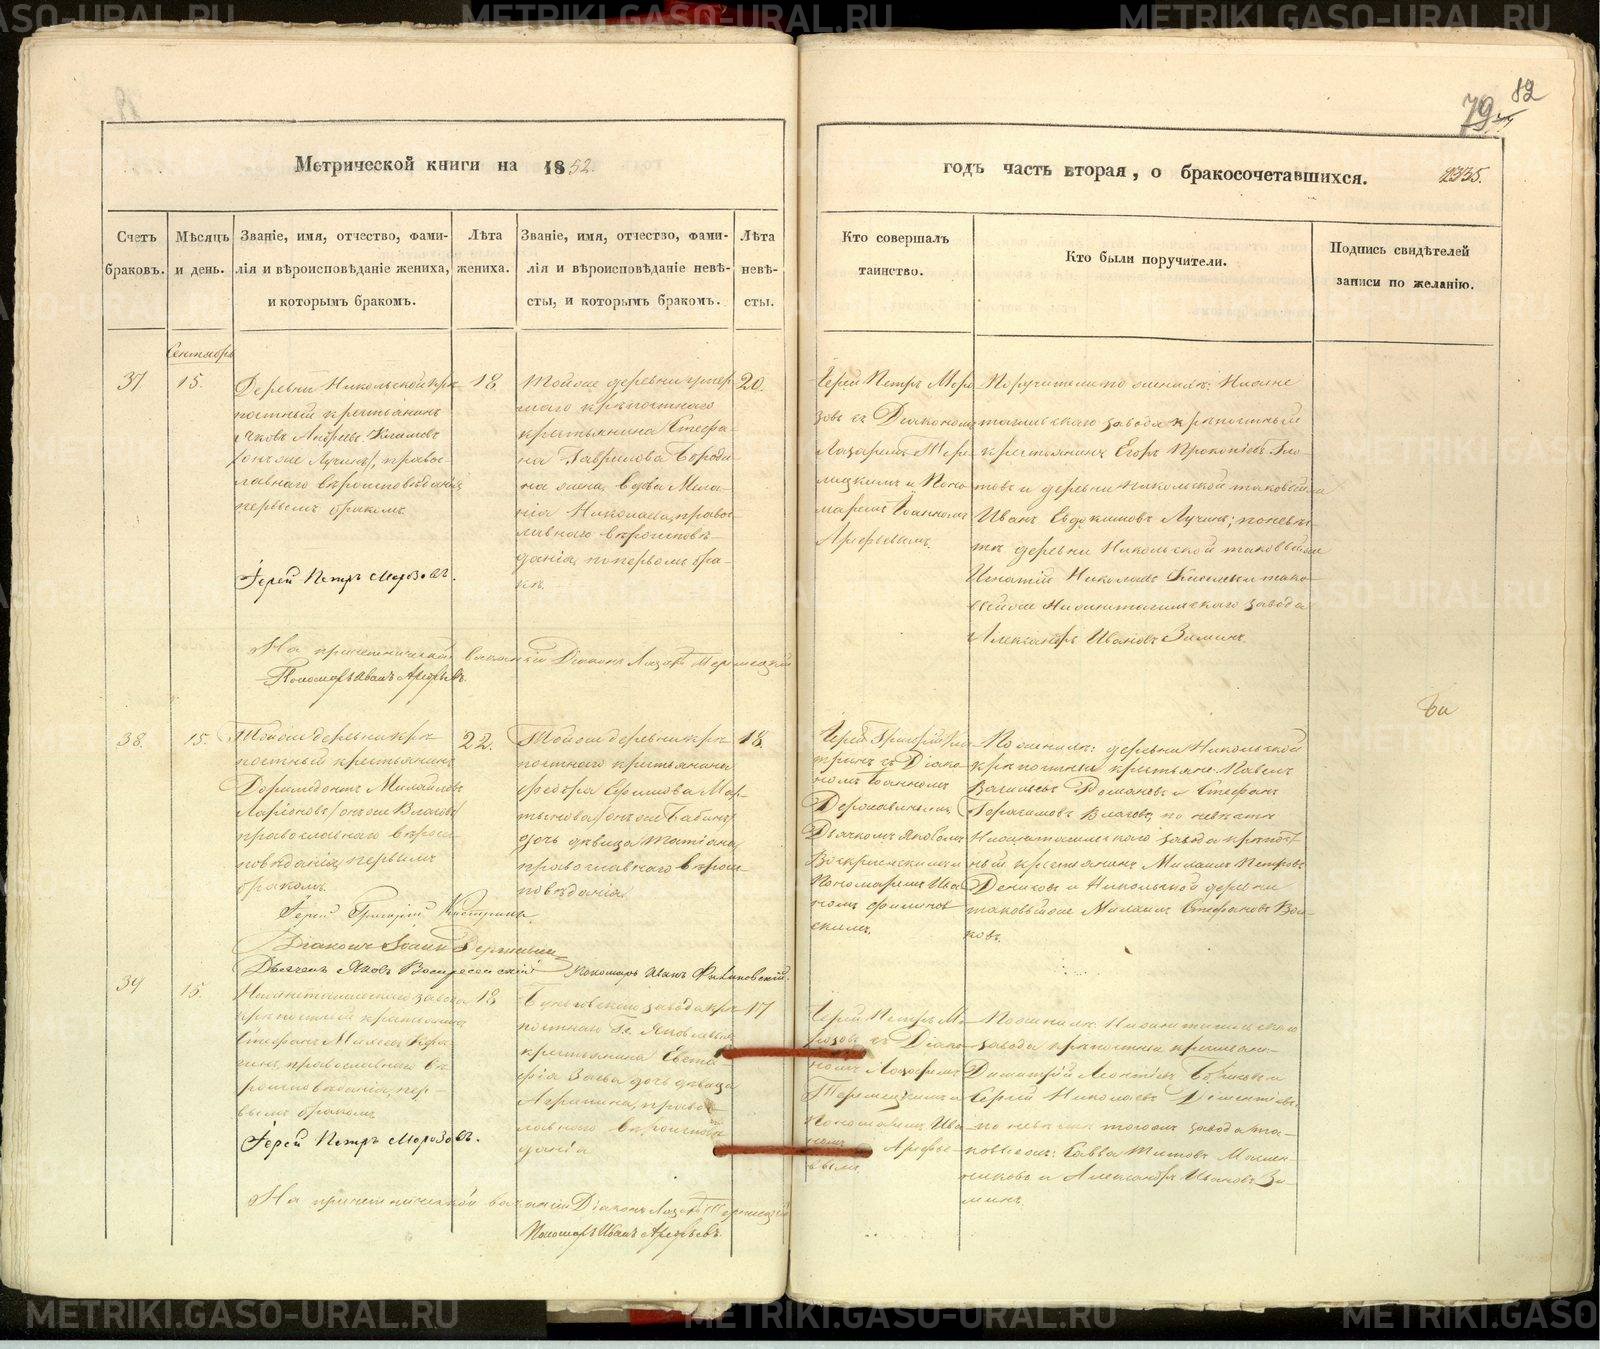 METRIKI.GASO-URAL.RU
82
79
Метрической книги на 1852.
годъ часть вторая, о бракосочетавшихся.
2335.
Счетъ браковъ.
Мѣсяцъ и день.
Званіе, имя, отчество, фами-
лія и вѣроисповѣданіе жениха,
и которымъ бракомъ.
Лѣта
жениха.
Званіе, имя, отчество, фами-
лія и вѣроисповѣданіе невѣ-
сты, и которымъ бракомъ.
Лѣта
невѣ-
сты.
Кто совершалъ
таинство.
Кто были поручители.
Подпись свидѣтелей
записи по желанію.
Сентябрь
37
15.
Деревни Никольской крѣ-
постный крестьянинъ
Яковъ Андреевъ
Лучинъ, право-
славнаго вѣроисповѣданія,
первымъ бракомъ.
18
Той же деревни умер-
шаго крѣпостнаго
крестьянина Стефа-
на Гаврилова Бороди-
на жена, вдова Мела-
нія Николаева, право-
славнаго вѣроисповѣ-
данія, первомъ бра-
кѣ.
20.
Іерей Петръ Моро-
зовъ съ Діакономъ
Лазаремъ Тере-
мецкимъ и Поно-
маремъ Іоанномъ
Арефьевымъ.
Поручители по женихѣ: Нижне
тагильскаго завода крѣпостный
крестьянинъ Егоръ Прокопіевъ
и деревни Никольской таковый же
Иванъ Евдокимовъ Лучинъ; по невѣс-
тѣ деревни Никольской таковый же
Игнатій Николаевъ и тако-
вый же Нижнетагильскаго завода
Александръ Ивановъ Зиминъ.
Іерей Петръ Морозовъ.
На причетнической ваканціи Діаконъ Лазарь Теремецкій
Пономарь Иванъ Арефьевъ.
38.
15.
Той же деревни крѣ-
постный крестьянинъ
Доримедонтъ Михайловъ
Ларіоновъ /онъ же Власовъ/
православнаго вѣроис-
повѣданія, первымъ
бракомъ.
22.
Той же деревни крѣ-
постнаго крестьянина
Федора Ефимова Мар-
тынова /онъ же Бабинъ/
дочь дѣвица Татіана,
православнаго вѣроис-
повѣданія.
18.
Іерей Григорій Кас-
тринъ съ Діако-
номъ Іоанномъ
Державинымъ,
Дьячкомъ Яковомъ
Воскресенскимъ и
Пономаремъ Ива-
номъ Филинов-
скимъ.
По женихѣ: деревни Никольской
крѣпостные крестьяне Павелъ
Васильевъ Романовъ и Стефанъ
Герасимовъ Власовъ, по невѣстѣ
Нижнетагильскаго завода крѣпост-
ный крестьянинъ Михаилъ Петровъ
и Никольской деревни
таковый же Михаилъ Стефановъ
ковъ.
Іерей Григорій Кастринъ.
Діаконъ Іоаннъ Державинъ
Дьячекъ Яковъ Воскресенскій
Пономарь Иванъ Филиновскій.
39
15.
Нижнетагильскаго завода
крѣпостный крестьянинъ
Стефанъ
православнаго вѣ-
роисповѣданія, пер-
вымъ бракомъ.
18
завода крѣ-
постнаго Яковлева
крестьянина Евста-
фія Заева дочь дѣвица
Агрипина, право-
славнаго вѣроисповѣ-
данія
17
Іерей Петръ Мо-
розовъ съ Діако-
номъ Лазаремъ
Теремецкимъ и
Пономаремъ Ива-
номъ Арефье-
вымъ
По женихѣ: Нижнетагильскаго
завода крѣпостные крестьяне
Димитрій Леонтіевъ и
Сергій Николаевъ Дементіевъ,
по невѣстѣ того же завода та-
ковые же: Савва Титовъ Маслен-
никовъ и Александръ Ивановъ Зи-
минъ.
Іерей Петръ Морозовъ.
На причетнической ваканціи Діаконъ Лазарь Теремецкій
Пономарь Иванъ Арефьевъ.